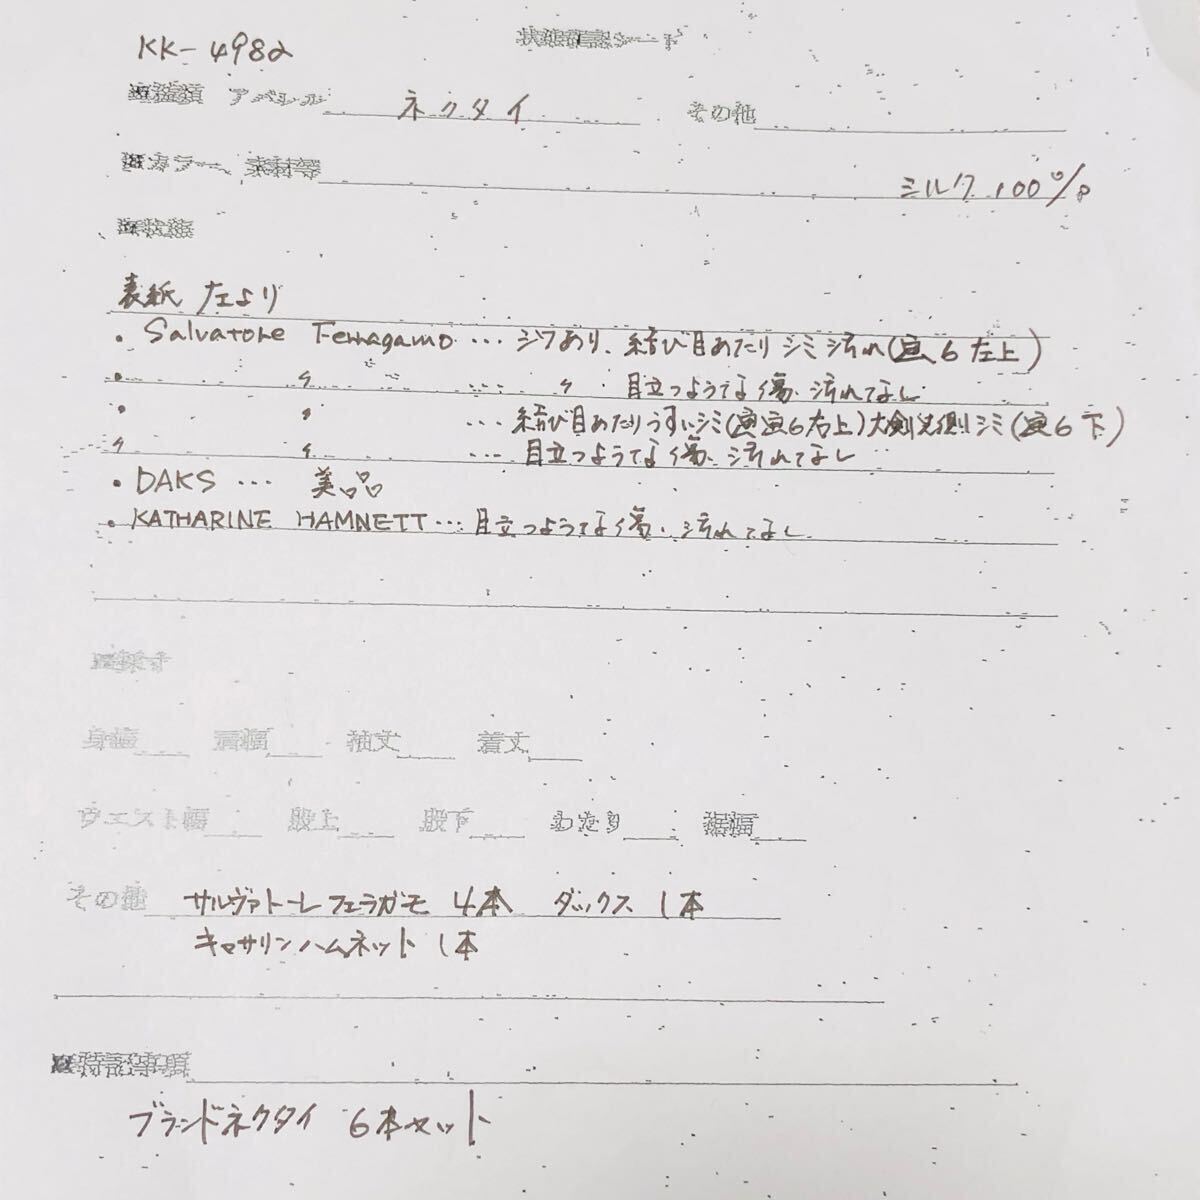 KK-4982
状態確認シート
アパレル ネクタイ その他
カラー、素材等 シルク 100%
※状態
表紙 左より
・Salvatore Ferragamo … シワあり、結び目あたりシミ汚れ(画6左上)
・ 〃 … 〃 目立つような傷、汚れてなし
・ 〃 … 結び目あたりうすいシミ(画6右上)大剣先側シミ(画6下)
〃 〃 … 目立つような傷、汚れてなし
・DAKS … 美品
・KATHARINE HAMNETT … 目立つような傷、汚れてなし
採寸
身幅 肩幅 袖丈 着丈
ウエスト幅 股上 股下 わたり 裾幅
その他 サルヴァトーレフェラガモ 4本 ダックス 1本
キャサリンハムネット 1本
※特記事項
ブランドネクタイ 6本セット